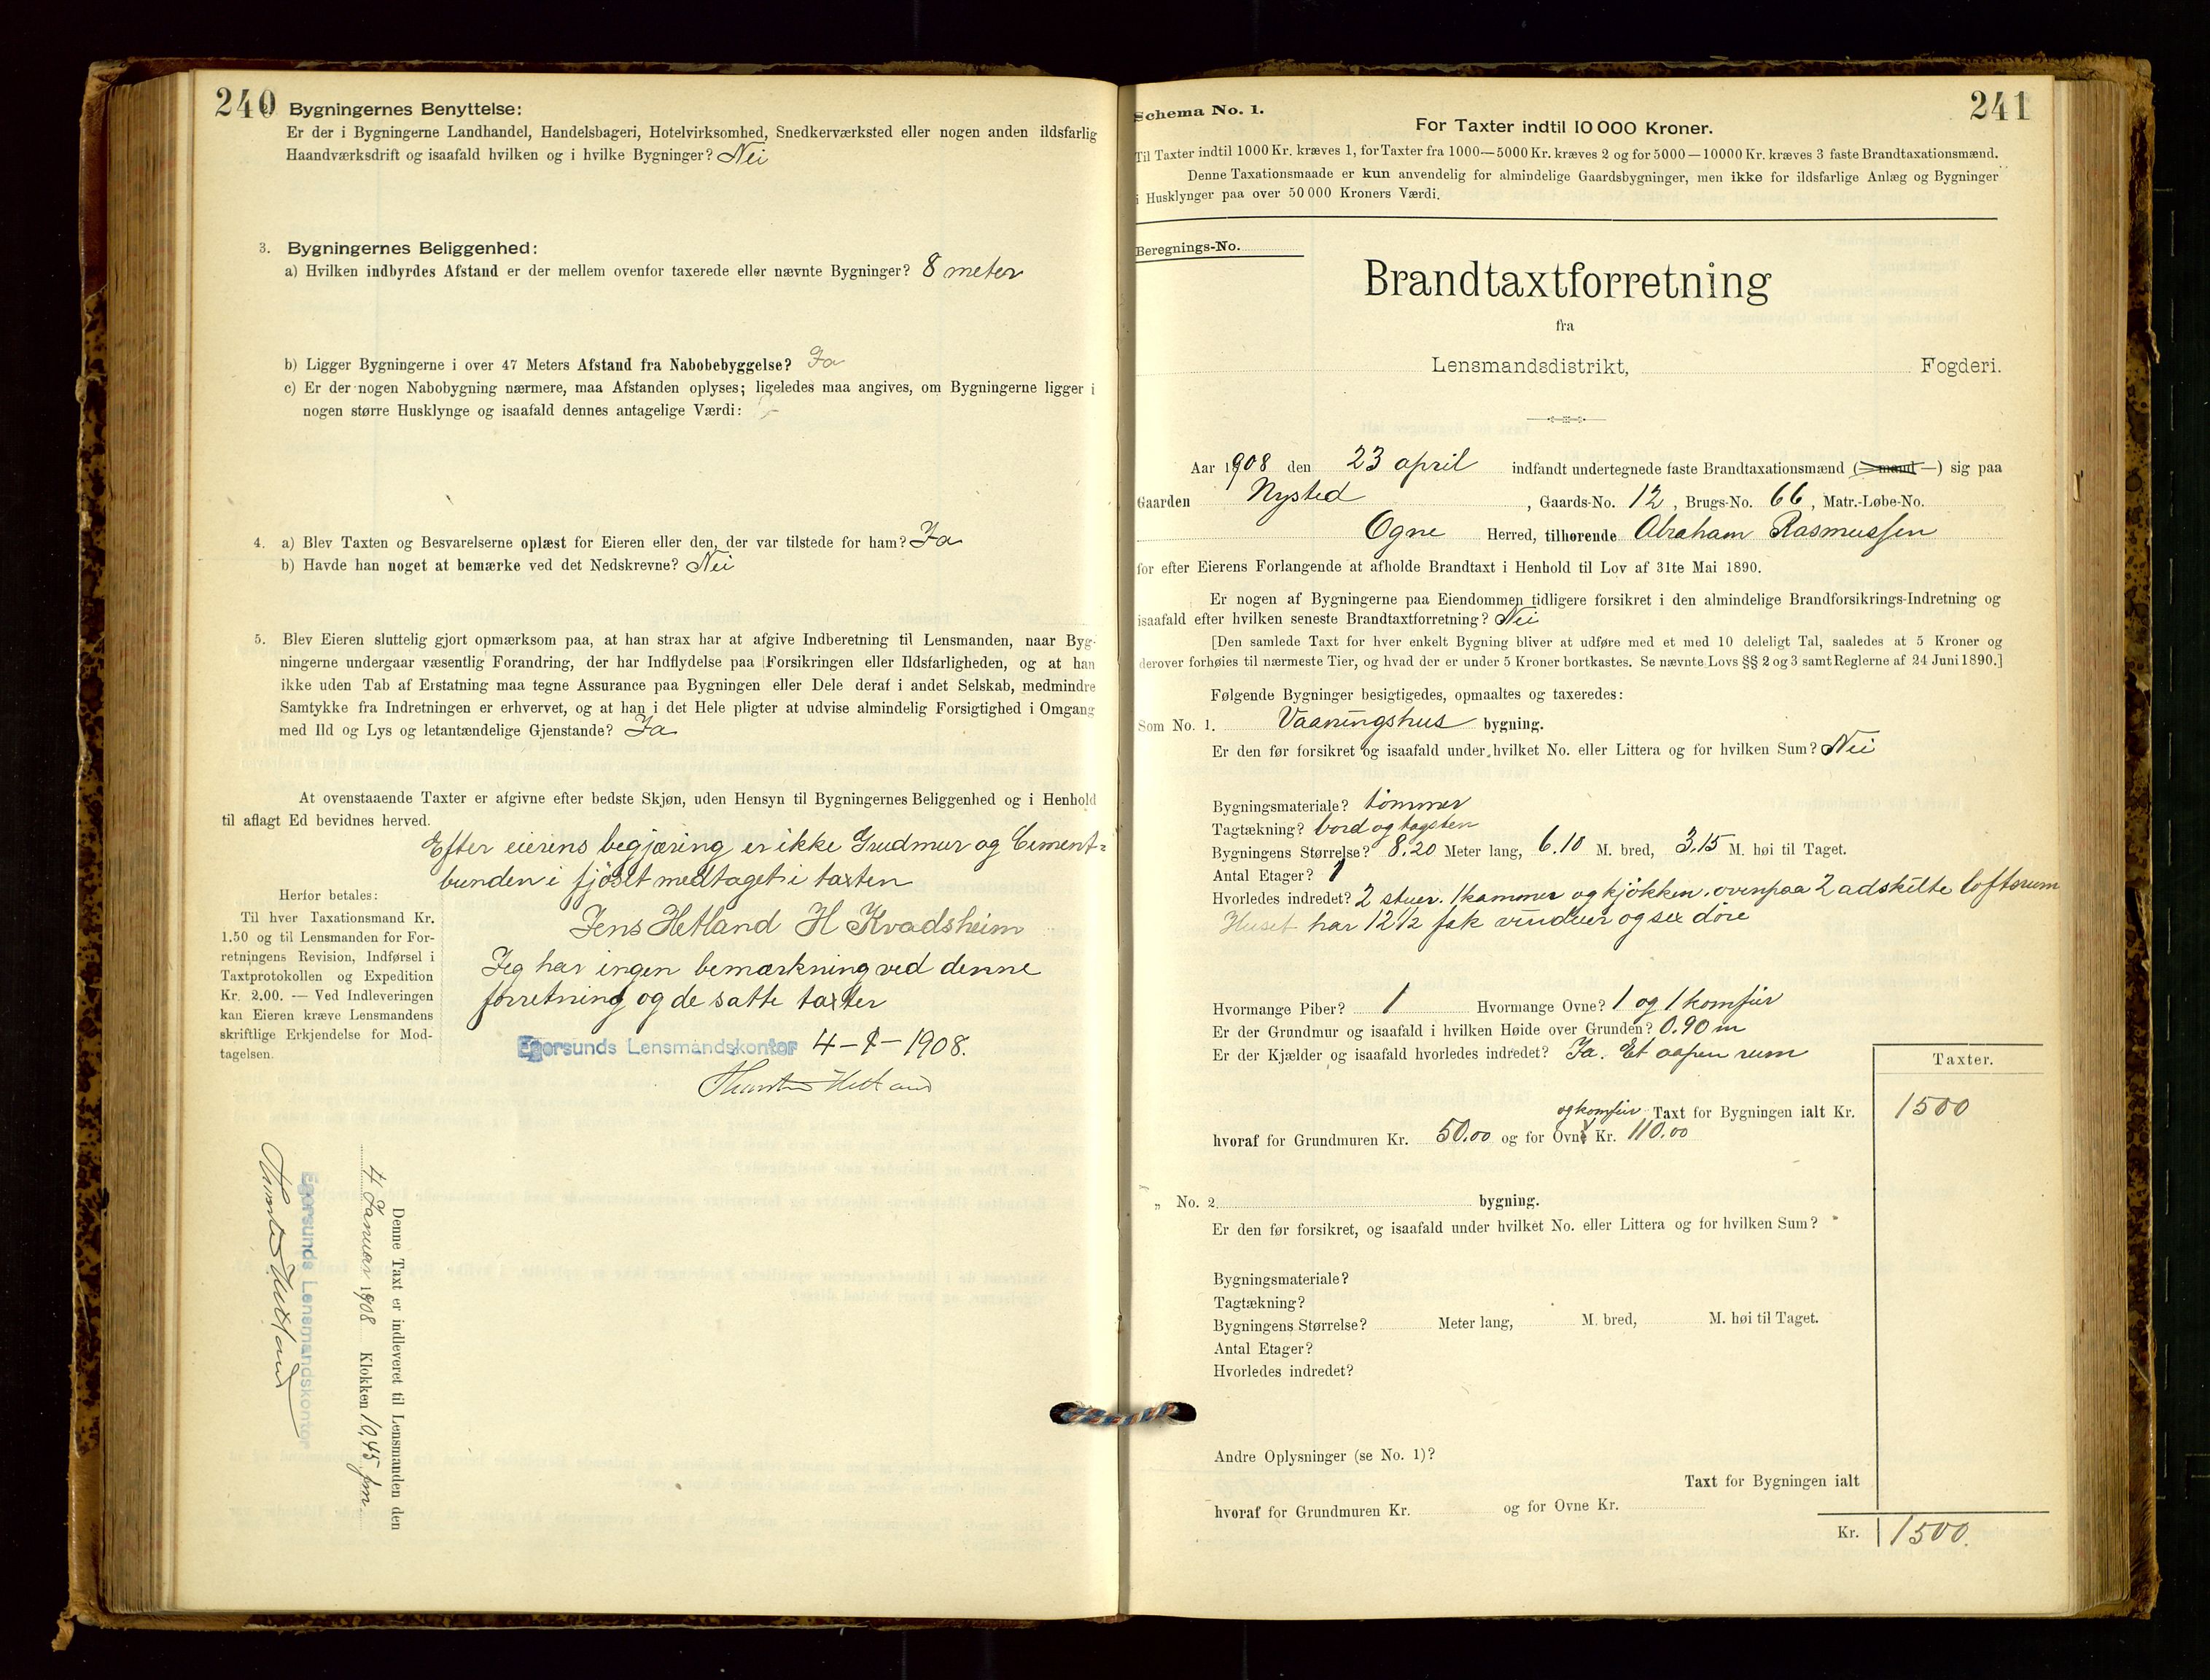 240
Bygningernes Benyttelse:
Er der i Bygningerne Landhandel, Handelsbageri, Hotelvirksomhed, Snedkerværksted eller nogen anden ildsfarlig
Haandværksdrift og isaafald hvilken og i hvilke Bygninger? Nei
3. Bygningernes Beliggenhed:
a) Hvilken indbyrdes Afstand er der mellem ovenfor taxerede eller nævnte Bygninger? 8 meter
b) Ligger Bygningerne i over 47 Meters Afstand fra Nabobebyggelse? Ja
c) Er der nogen Nabobygning nærmere, maa Afstanden oplyses; ligeledes maa angives, om Bygningerne ligger i
nogen større Husklynge og isaafald dennes antagelige Værdi:
4. a) Blev Taxten og Besvarelserne oplæst for Eieren eller den, der var tilstede for ham? Ja
b) Havde han noget at bemærke ved det Nedskrevne? Nei
5. Blev Eieren sluttelig gjort opmærksom paa, at han strax har at afgive Indberetning til Lensmanden, naar Byg-
ningerne undergaar væsentlig Forandring, der har Indflydelse paa Forsikringen eller Ildsfarligheden, og at han
ikke uden Tab af Erstatning maa tegne Assurance paa Bygningen eller Dele deraf i andet Selskab, medmindre
Samtykke fra Indretningen er erhvervet, og at han i det Hele pligter at udvise almindelig Forsigtighed i Omgang
med Ild og Lys og letantændelige Gjenstande? Ja
At ovenstaaende Taxter er afgivne efter bedste Skjøn, uden Hensyn til Bygningernes Beliggenhed og i Henhold
til aflagt Ed bevidnes herved.
Efter eierens begjæring er ikke Grudmur og Cement-
bunden i fjöset medtaget i taxten
Jens Hetland H Kvadsheim
Jeg har ingen bemærkning ved denne
forretning og de satte taxter
Egersunds Lensmandskontor 4-1-1908.
Hetland
Herfor betales:
Til hver Taxationsmand Kr.
1.50 og til Lensmanden for For-
retningens Revision, Indførsel i
Taxtprotokollen og Expedition
Kr. 2.00. — Ved Indleveringen
kan Eieren kræve Lensmandens
skriftlige Erkjendelse for Mod-
tagelsen.
Denne Taxt er indleveret til Lensmanden den
4 Januar 1908 Klokken 10,45 fm.
Egersunds Lensmandskontor
Hetland
241
Schema No. 1.
For Taxter indtil 10 000 Kroner.
Til Taxter indtil 1000 Kr. kræves 1, for Taxter fra 1000—5000 Kr. kræves 2 og for 5000—10000 Kr. kræves 3 faste Brandtaxationsmænd.
Denne Taxationsmaade er kun anvendelig for almindelige Gaardsbygninger, men ikke for ildsfarlige Anlæg og Bygninger
i Husklynger paa over 50 000 Kroners Værdi.
Beregnings-No.
Brandtaxtforretning
fra
Lensmandsdistrikt, Fogderi.
Aar 1908 den 23 april indfandt undertegnede faste Brandtaxationsmænd (—mand—) sig paa
Gaarden Nysted, Gaards-No. 12, Brugs-No. 66, Matr.-Løbe-No.
Ogne Herred, tilhørende Abraham Rasmussen
for efter Eierens Forlangende at afholde Brandtaxt i Henhold til Lov af 31te Mai 1890.
Er nogen af Bygningerne paa Eiendommen tidligere forsikret i den almindelige Brandforsikrings-Indretning og
isaafald efter hvilken seneste Brandtaxtforretning? Nei
[Den samlede Taxt for hver enkelt Bygning bliver at udføre med et med 10 deleligt Tal, saaledes at 5 Kroner og
derover forhøies til nærmeste Tier, og hvad der er under 5 Kroner bortkastes. Se nævnte Lovs §§ 2 og 3 samt Reglerne af 24 Juni 1890.]
Følgende Bygninger besigtigedes, opmaaltes og taxeredes:
Som No. 1. Vaaningshus bygning.
Er den før forsikret og isaafald under hvilket No. eller Littera og for hvilken Sum? Nei
Bygningsmateriale? tömmer
Tagtækning? bord og tagsten
Bygningens Størrelse? 8.20 Meter lang, 6.10 M. bred, 3.15 M. høi til Taget.
Antal Etager? 1
Hvorledes indredet? 2 stuer. 1 kammer og kjökken. ovenpaa 2 adskilte loftsrum
Huset har 12 1/2 fak vinduer og sex döre
Hvormange Piber? 1 Hvormange Ovne? 1 og 1 komfur
Er der Grundmur og isaafald i hvilken Høide over Grunden? 0.90 m
Er der Kjælder og isaafald hvorledes indredet? Ja. Et aapen rum
Taxter.
og komfur Taxt for Bygningen ialt Kr. 1500
hvoraf for Grundmuren Kr. 50.00 og for Ovne Kr. 110.00
„ No. 2 bygning.
Er den før forsikret, og isaafald under hvilket No. eller Littera og for hvilken Sum?
Bygningsmateriale?
Tagtækning?
Bygningens Størrelse? Meter lang, M. bred, M. høi til Taget.
Antal Etager?
Hvorledes indredet?
Andre Oplysninger (se No. 1)?
Taxt for Bygningen ialt
hvoraf for Grundmuren Kr. og for Ovne Kr.
Kr. 1500.